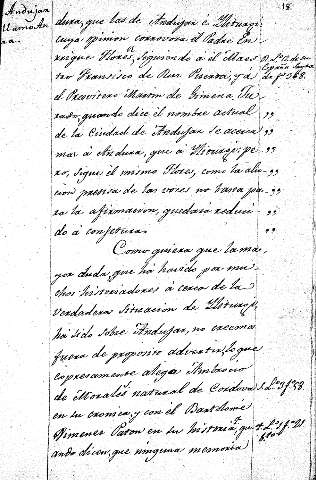 18
Andujar
llamo An
ra.
dura, que las de Andujar é Iliturgi:
cuya opinion corrovora el Padre En-
rique Flores, siguiendo á el Maes-
tro Francisco de Rus Puerta, y á
el Presvitero Martin de Gimena Ju-
rado, quando dice el nombre actual
de la Ciudad de Andujar se acerca
mas á Andura, que á Iliturgi: pe-
ro, sigue el mismo Flores, como la alu-
cion precisa de las voces no basta pa-
ra la afirmacion, quedará reduci-
do á conjetura.
Como quiera que la ma-
yor duda, que há havido por mu-
chos historiadores á cerca de la
verdadera situacion de Iliturgi,
há sido sobre Andujar, no creemos
fuera de proposito advertir, lo que
expresamente alega Ambrocio
de Morales natural de Cordova
en su cronica, y con él Bartolomé
Ximenez Paton en su historia, qu-
ando dicen, que ninguna memoria